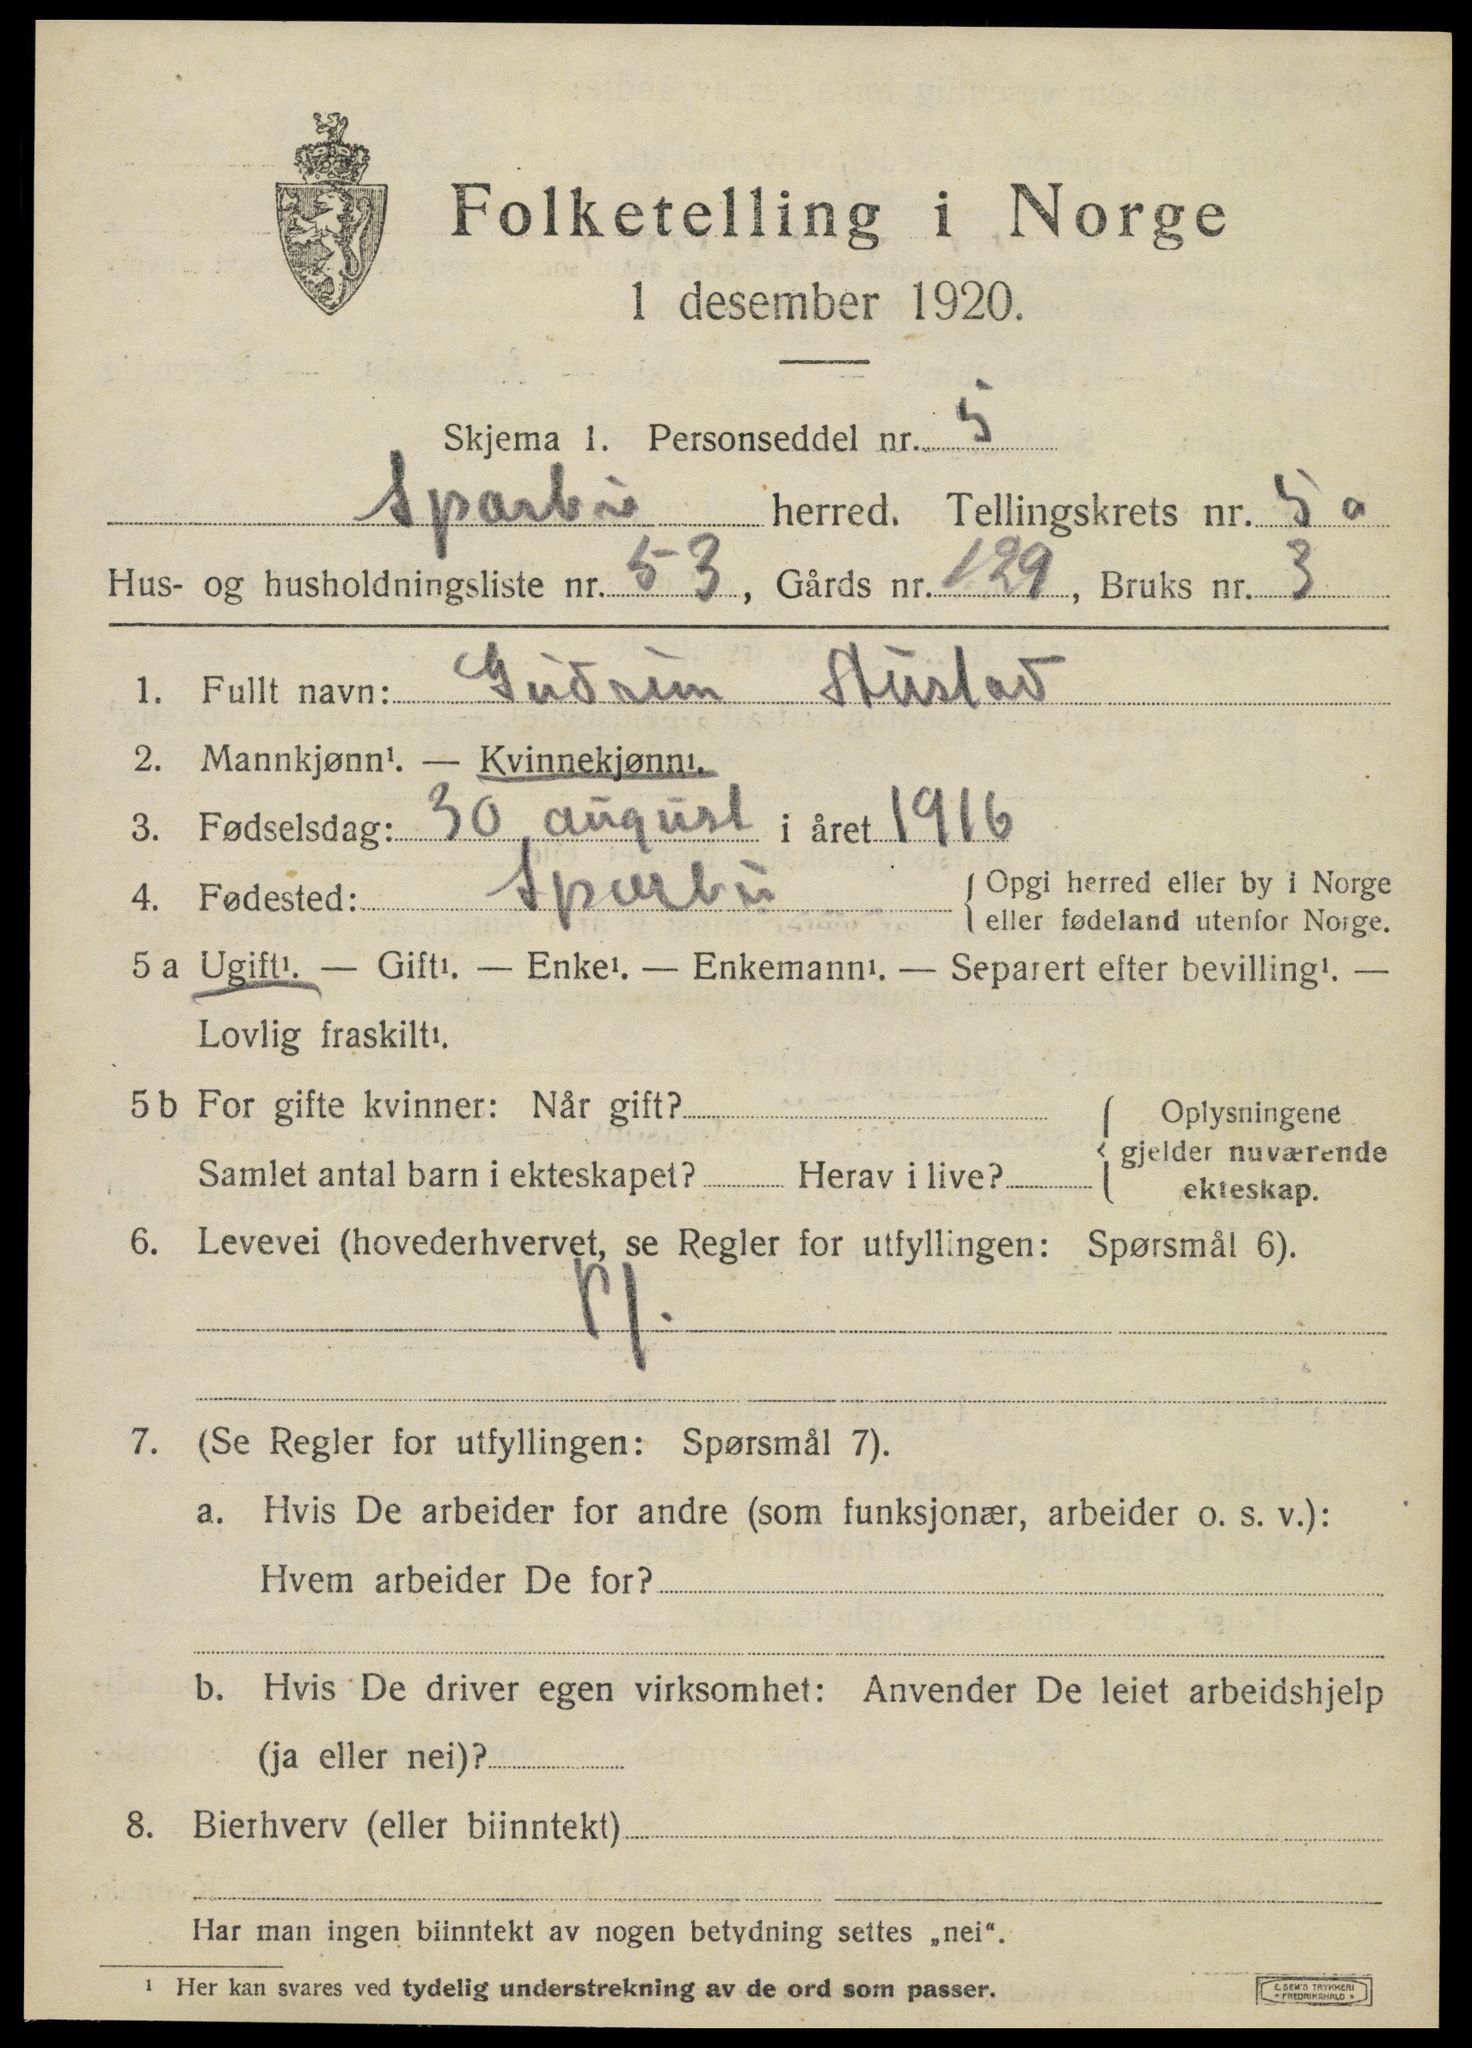 Folketelling i Norge
1 desember 1920.
Skjema 1. Personseddel nr. 5
Sparbu herred. Tellingskrets nr. 5 a
Hus- og husholdningsliste nr. 53, Gårds nr. 129, Bruks nr. 3
1. Fullt navn: Gudrun
2. Mannkjønn¹. — Kvinnekjønn¹.
3. Fødselsdag: 30 august i året 1916
4. Fødested: Sparbu { Opgi herred eller by i Norge
eller fødeland utenfor Norge.
5 a Ugift¹. — Gift¹. — Enke¹. — Enkemann¹. — Separert efter bevilling¹. —
Lovlig fraskilt¹.
5 b For gifte kvinner: Når gift? { Oplysningene
gjelder nuværende
Samlet antal barn i ekteskapet? Herav i live? ekteskap.
6. Levevei (hovederhvervet, se Regler for utfyllingen: Spørsmål 6).
7. (Se Regler for utfyllingen: Spørsmål 7).
a. Hvis De arbeider for andre (som funksjonær, arbeider o. s. v.):
Hvem arbeider De for?
b. Hvis De driver egen virksomhet: Anvender De leiet arbeidshjelp
(ja eller nei)?
8. Bierhverv (eller biinntekt)
Har man ingen biinntekt av nogen betydning settes „nei“.
¹ Her kan svares ved tydelig understrekning av de ord som passer.
E. SEM'S TRYKKERI
FREDRIKSHALD